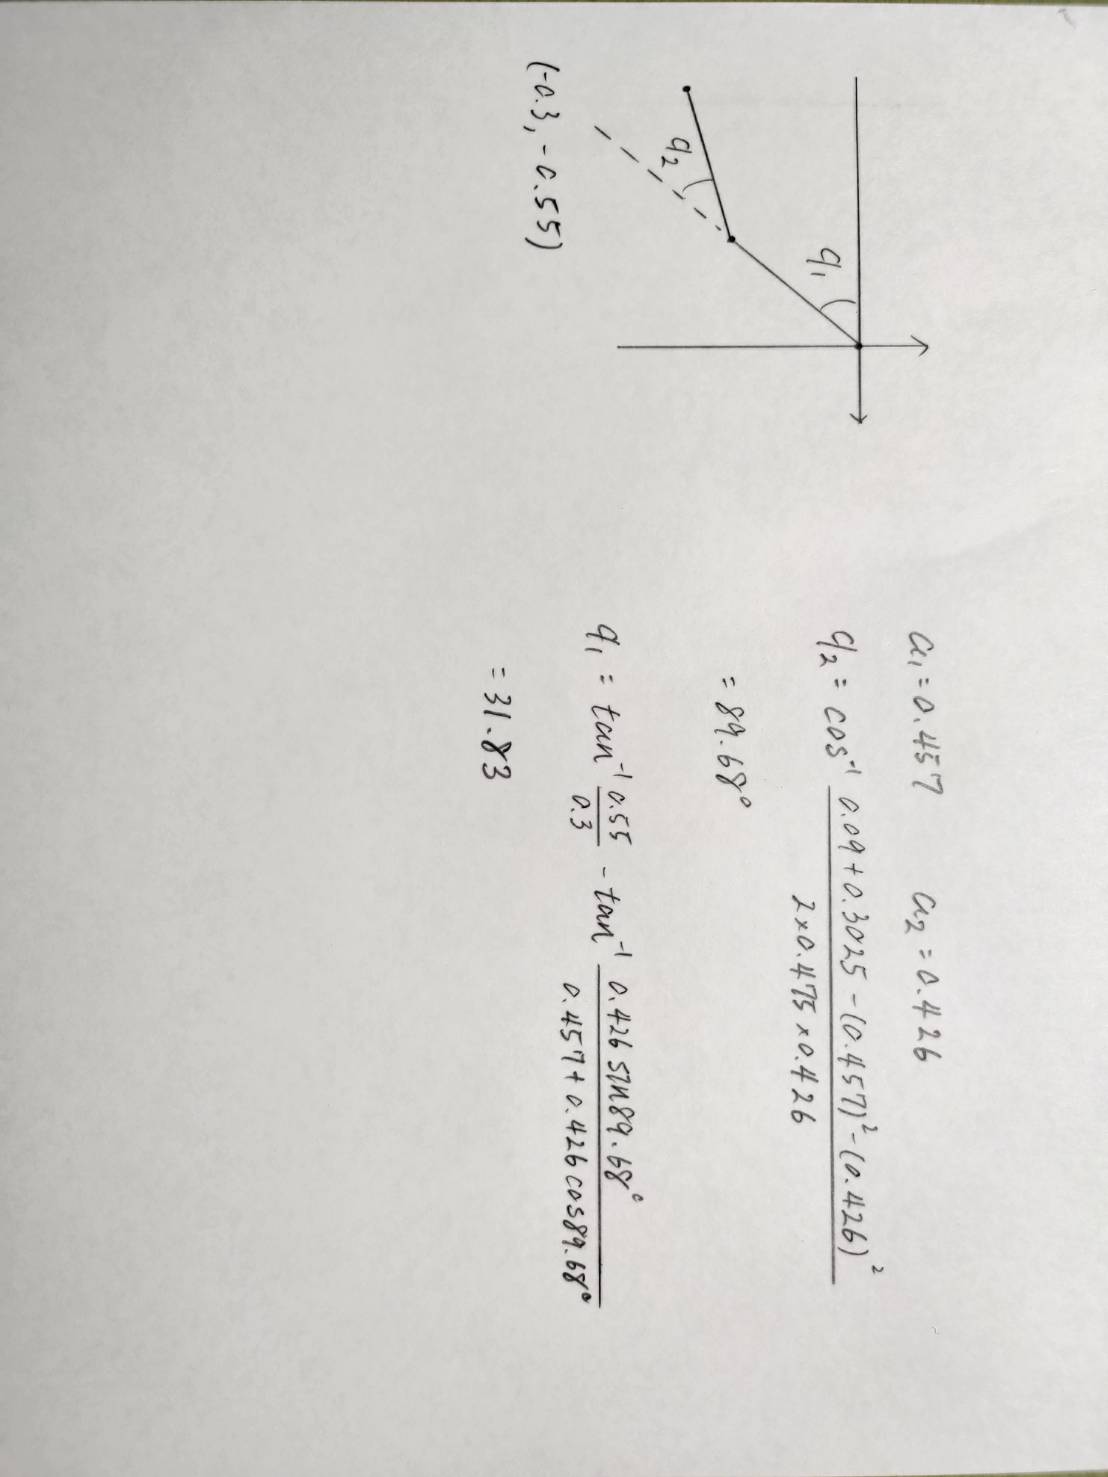 q₁
q₂
(-0.3, -0.55)
a₁ = 0.457 a₂ = 0.426
q₂ = cos⁻¹ (0.09 + 0.3025 - (0.457)² - (0.426)²) / (2 × 0.475 × 0.426)
= 89.68°
q₁ = tan⁻¹ 0.55 / 0.3 - tan⁻¹ (0.426 sin89.68°) / (0.457 + 0.426 cos89.68°)
= 31.83